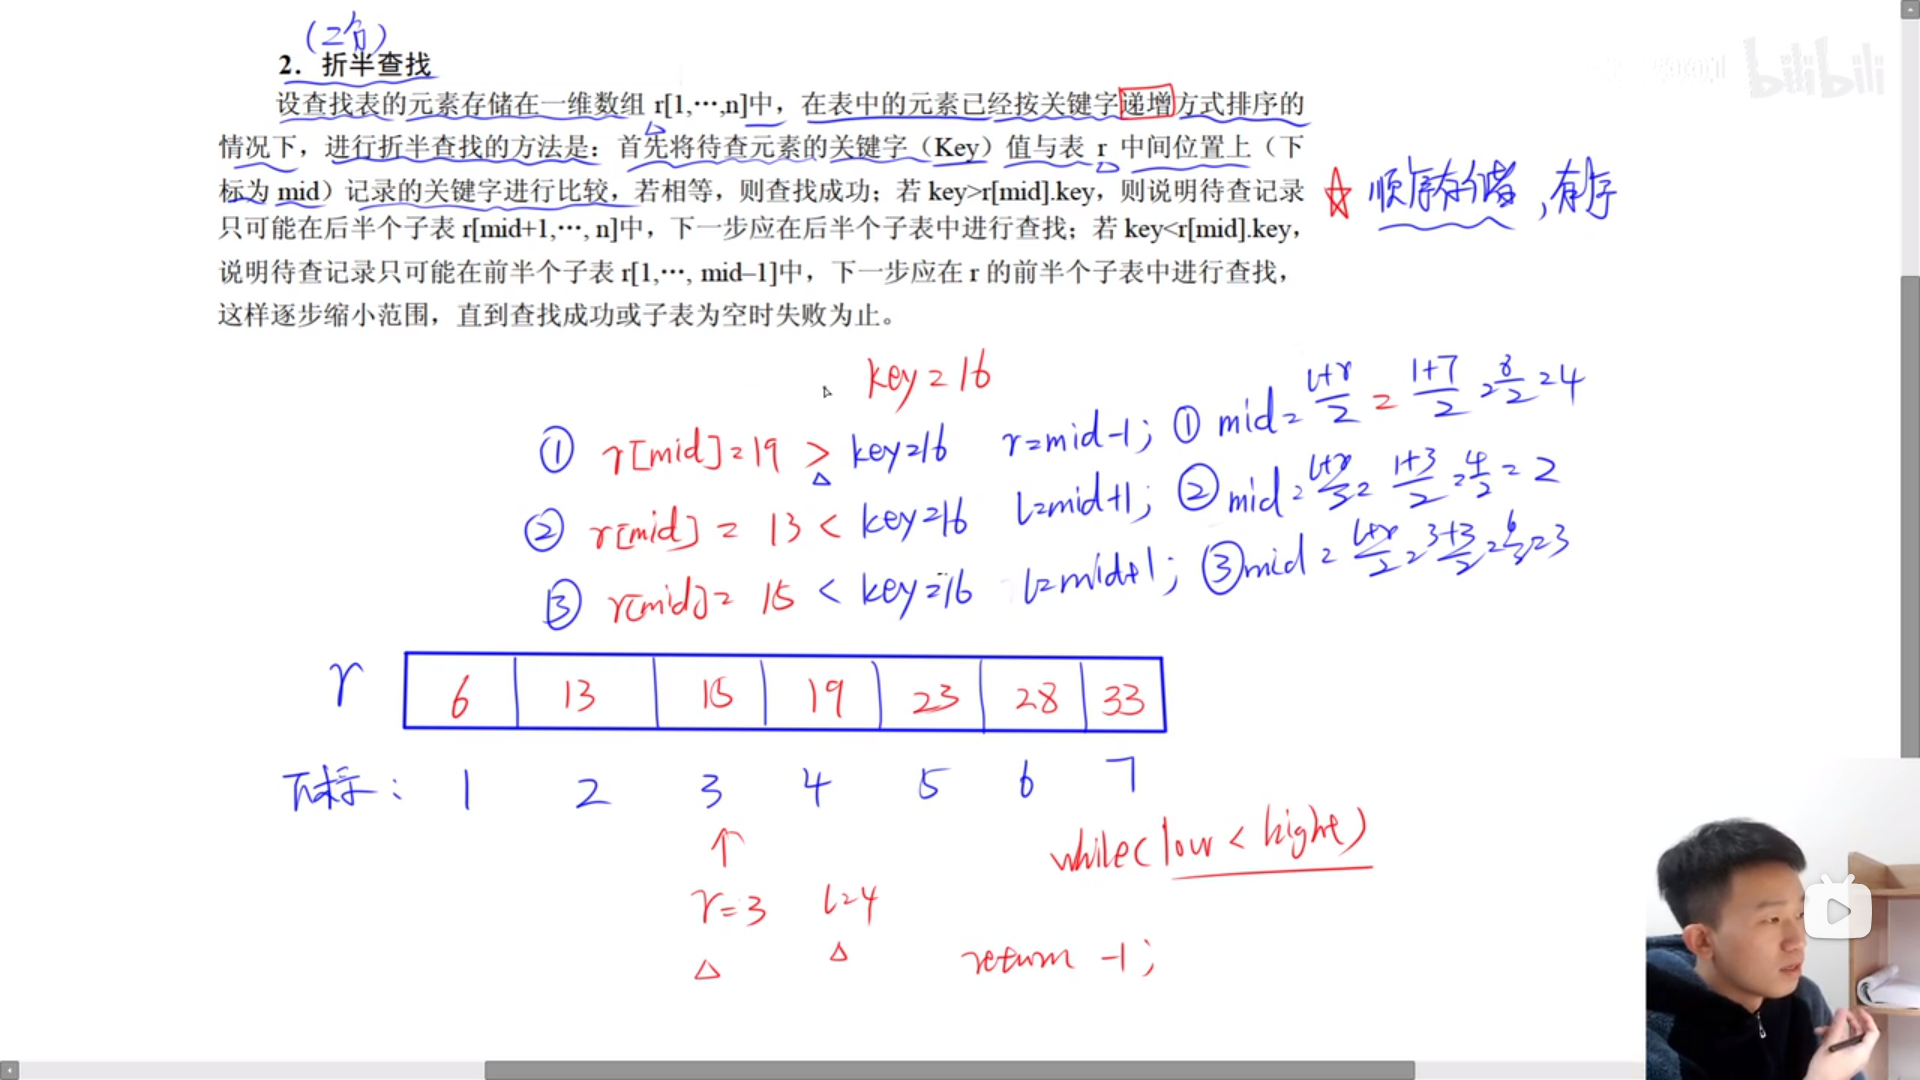 (2分)
2．折半查找
bilibili
设查找表的元素存储在一维数组 r[1,⋯,n]中，在表中的元素已经按关键字递增方式排序的
情况下，进行折半查找的方法是：首先将待查元素的关键字（Key）值与表 r 中间位置上（下
标为 mid）记录的关键字进行比较，若相等，则查找成功；若 key>r[mid].key，则说明待查记录
☆ 顺序存储，有序
只可能在后半个子表 r[mid+1,⋯, n]中，下一步应在后半个子表中进行查找；若 key<r[mid].key，
说明待查记录只可能在前半个子表 r[1,⋯, mid–1]中，下一步应在 r 的前半个子表中进行查找，
这样逐步缩小范围，直到查找成功或子表为空时失败为止。
key=16
① r[mid]=19 > key=16 r=mid-1; ① mid=l+r/2=1+7/2=8/2=4
② r[mid]=13 < key=16 l=mid+1; ② mid=l+r/2=1+3/2=4/2=2
③ r[mid]=15 < key=16 l=mid+1; ③ mid=l+r/2=3+3/2=6/2=3
r 6 13 15 19 23 28 33
下标: 1 2 3 4 5 6 7
↑
while(low < hight)
r=3 l=4
return -1;